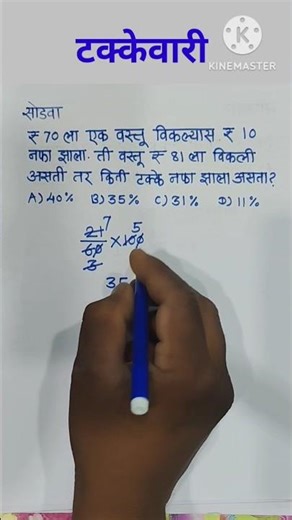 टक्केवारी
KINEMASTER
सोडवा
₹ 70 ला एक वस्तू विकल्यास ₹ 10
नफा झाला. ती वस्तू ₹ 81 ला विकली
असती तर किती टक्के नफा झाला असता?
A) 40% B) 35% C) 31% D) 11%
21 7 5
60 × 100
3
35